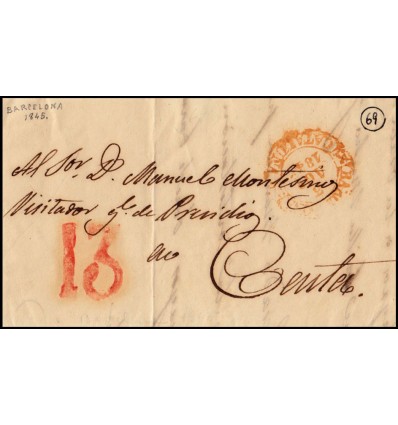 BARCELONA
1845.
69
Al Sor. D. Manuel Montesino
Visitador gl. de Presidio
en
Ceuta.
13